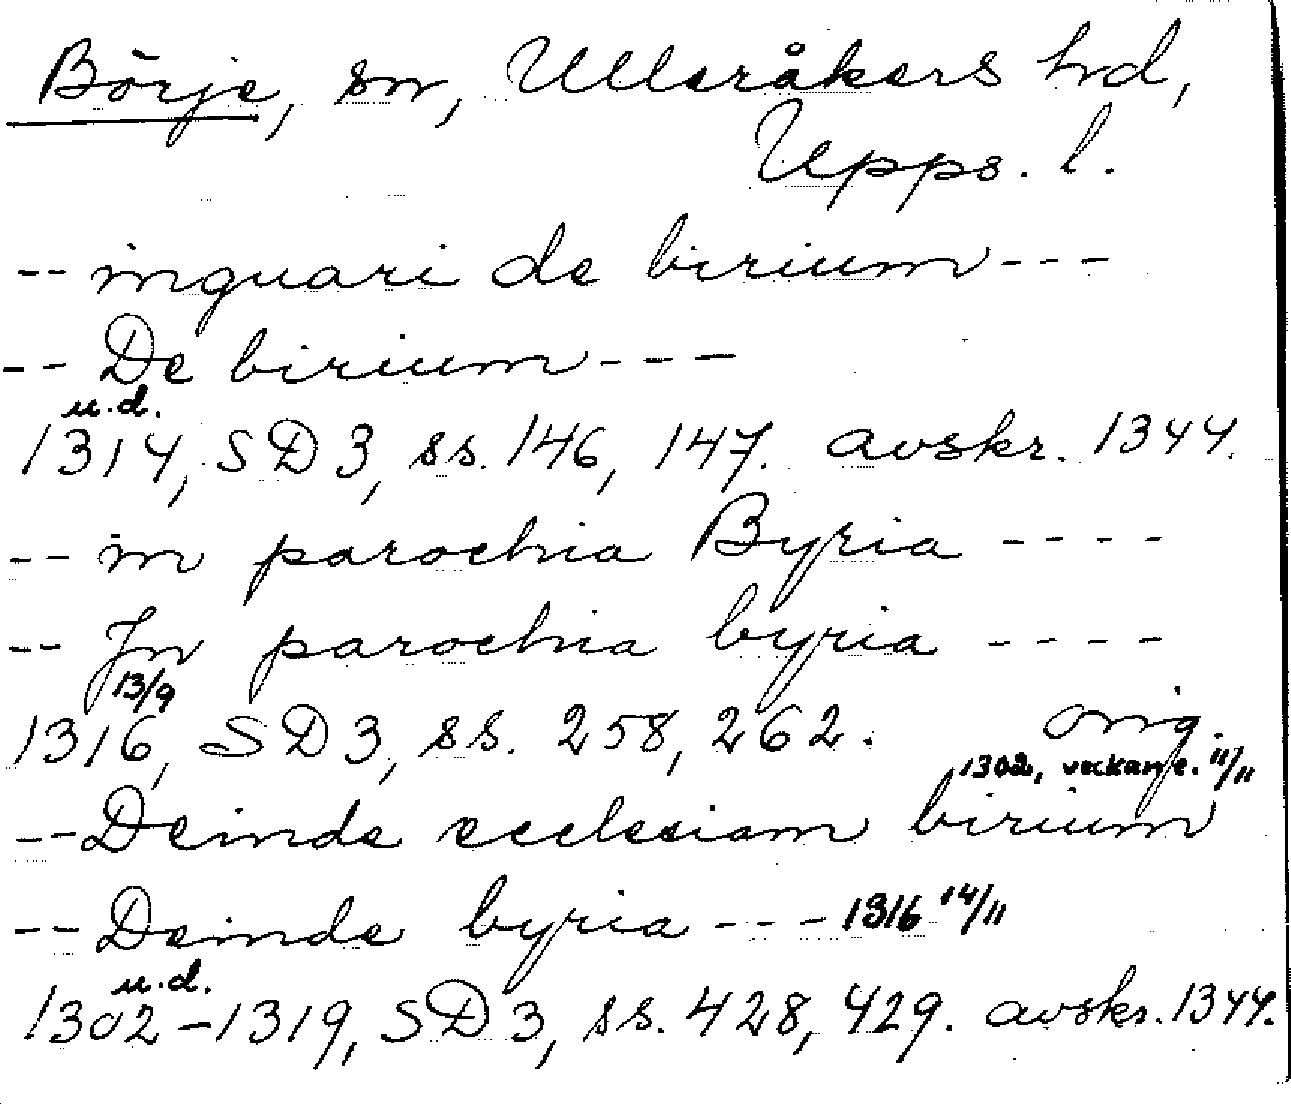 Börje, sn, Ulleråkers hd,
Upps. l.
-- inguari de birium ---
-- De birium ---
u.d.
1314, SD 3, ss. 146, 147. avskr. 1344.
-- in parochia Byria ----
-- In parochia byria ----
13/9
1316, SD 3, ss. 258, 262. orig.
1302, veckan e. 11/11
-- Deinde ecclesiam birium
-- Deinde byria --- 1316 14/11
u.d.
1302-1319, SD 3, ss. 428, 429. avskr. 1344.